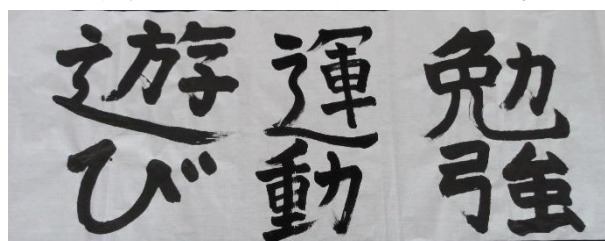 勉強
運動
遊び